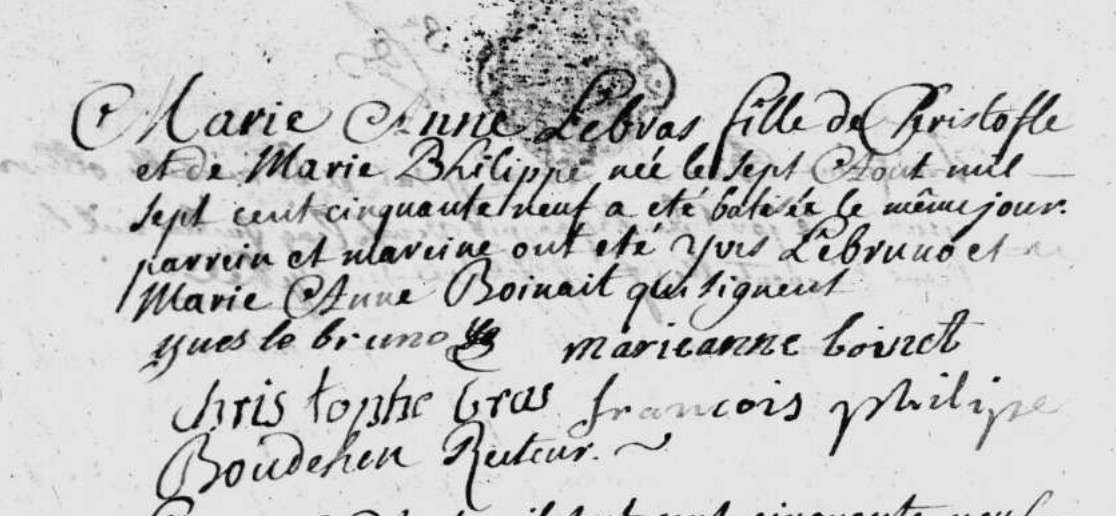 Marie Anne Lebras fille de Christofle
et de Marie Philippe née le sept Aout mil
sept cent cinquante neuf a eté batisée le même jour.
parrein et mareine ont eté Yves Lebruno et
Marie Anne Boinait qui signent
yues le bruno marieanne boinet
christophe bras francois philipe
Boudehen Recteur.